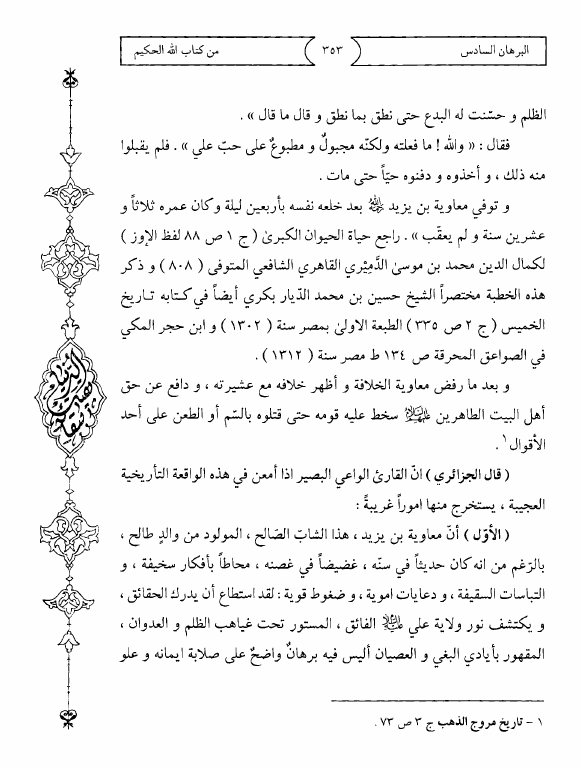 البرهان السادس
٣٥٣
من كتاب الله الحكيم
الظلم و حسّنت له البدع حتى نطق بما نطق و قال ما قال » .
فقال : « والله ! ما فعلته ولكنّه مجبولٌ و مطبوعٌ على حبّ علي » . فلم يقبلوا
منه ذلك ، و أخذوه و دفنوه حيّاً حتى مات .
و توفي معاوية بن يزيد بعد خلعه نفسه بأربعين ليلة وكان عمره ثلاثاً و
عشرين سنة و لم يعقّب » . راجع حياة الحيوان الكبرىٰ ( ج ١ ص ٨٨ لفظ الإوز )
لكمال الدين محمد بن موسىٰ الدَّمِيْري القاهري الشافعي المتوفى ( ٨٠٨ ) و ذكر
هذه الخطبة مختصراً الشيخ حسين بن محمد الدّيار بكري أيضاً في كتابه تاريخ
الخميس ( ج ٢ ص ٣٣٥ ) الطبعة الاولىٰ بمصر سنة ( ١٣٠٢ ) و ابن حجر المكي
في الصواعق المحرقة ص ١٣٤ ط مصر سنة ( ١٣١٢ ) .
و بعد ما رفض معاوية الخلافة و أظهر خلافه مع عشيرته ، و دافع عن حق
أهل البيت الطاهرين سخط عليه قومه حتى قتلوه بالسّم أو الطعن على أحد
الأقوال ١ .
( قال الجزائري ) انّ القارئ الواعي البصير اذا أمعن في هذه الواقعة التأريخية
العجيبة ، يستخرج منها اموراً غريبةً :
( الأوّل ) أنّ معاوية بن يزيد ، هذا الشابّ الصّالح ، المولود من والدٍ طالح ،
بالرّغم من انه كان حديثاً في سنّه ، غضيضاً في غصنه ، محاطاً بأفكار سخيفة ، و
التباسات السقيفة ، و دعايات اموية ، و ضغوط قوية : لقد استطاع أن يدرك الحقائق ،
و يكتشف نور ولاية علي الفائق ، المستور تحت غياهب الظلم و العدوان ،
المقهور بأيادي البغي و العصيان أليس فيه برهانٌ واضحٌ على صلابة ايمانه و علو
١ - تاريخ مروج الذهب ج ٣ ص ٧٣ .